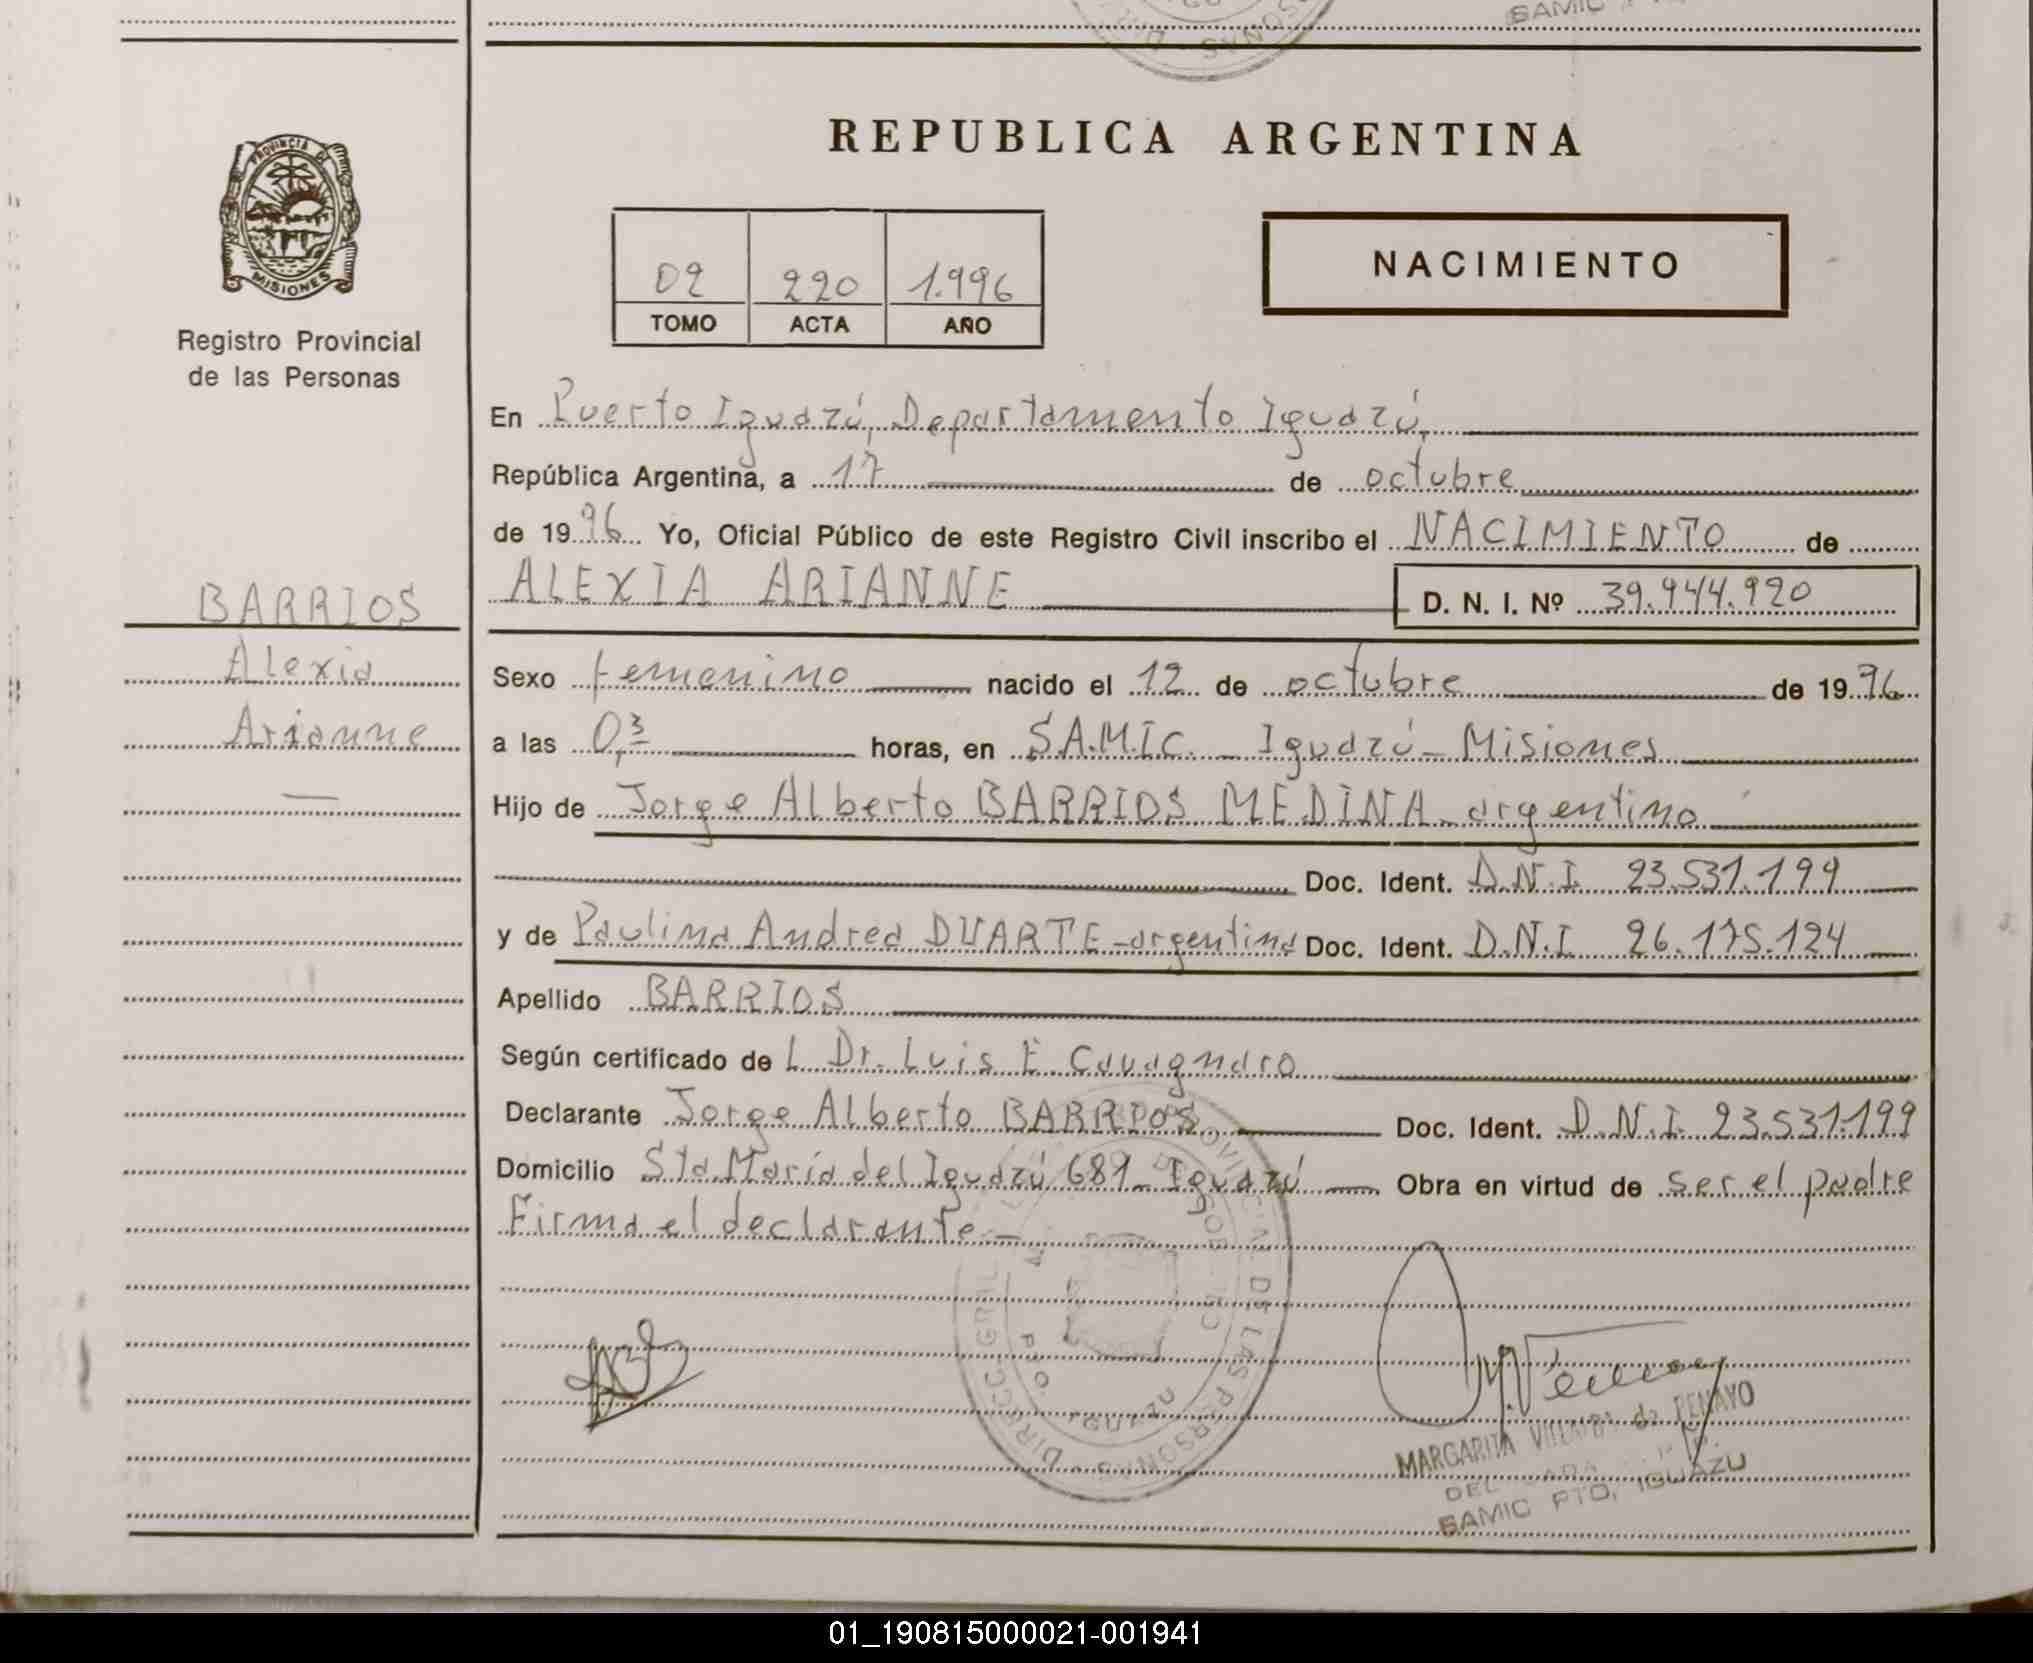 SAMIC
REPUBLICA ARGENTINA
PROVINCIA DE
MISIONES
Registro Provincial
de las Personas
02 220 1.996
TOMO ACTA AÑO
NACIMIENTO
En Puerto Iguazú, Departamento Iguazú,
República Argentina, a 17 de octubre
de 1996 Yo, Oficial Público de este Registro Civil inscribo el NACIMIENTO de
ALEXIA ARIANNE D. N. I. Nº 39.944.920
BARRIOS
Alexia
Arianne
Sexo femenino nacido el 12 de octubre de 1996
a las 0,3 horas, en S.A.M.I.C. - Iguazú - Misiones
Hijo de Jorge Alberto BARRIOS MEDINA - argentino
Doc. Ident. D.N.I. 23.531.199
y de Paulina Andrea DUARTE - argentina Doc. Ident. D.N.I. 26.175.124
Apellido BARRIOS
Según certificado de L Dr. Luis E. Cavagnaro
Declarante Jorge Alberto BARRIOS Doc. Ident. D.N.I. 23.531.199
Domicilio Sta. María del Iguazú 681 - Iguazú Obra en virtud de ser el padre
Firma el declarante -
MARGARITA VILLALBA de PENAYO
SAMIC PTO. IGUAZU
01_190815000021-001941